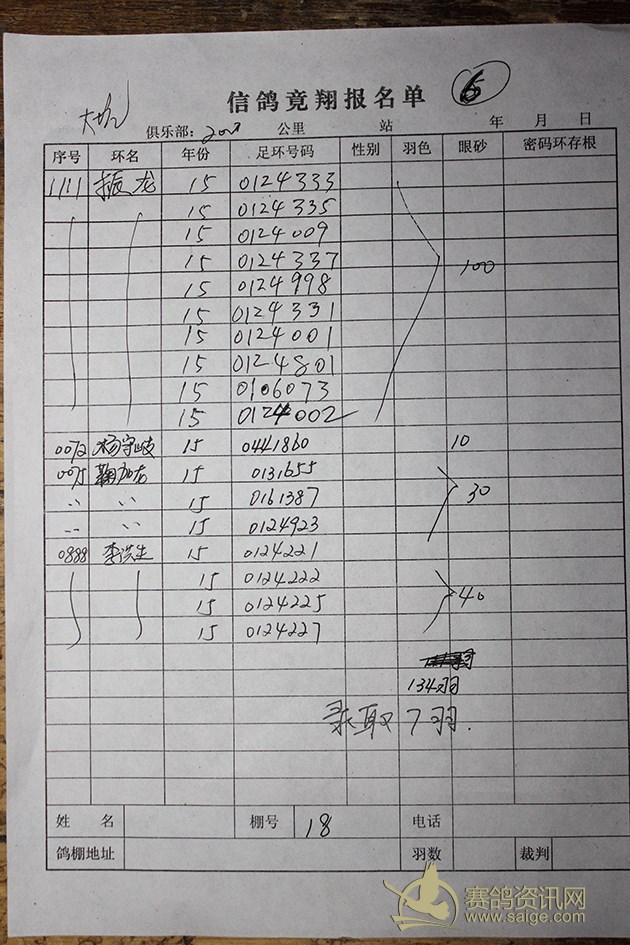 信鸽竞翔报名单 6
俱乐部: 200 公里 站 年 月 日
序号 环名 年份 足环号码 性别 羽色 眼砂 密码环存根
1111 振龙 15 0124333
15 0124335
15 0124009
15 0124337 100
15 0124998
15 0124331
15 0124001
15 0124801
15 0106073
15 0124002
0072 杨守岐 15 0441860 10
0075 鞠加龙 15 0131655
〃 〃 15 0161387 30
〃 〃 15 0124923
0888 李洪生 15 0124221
15 0124222
15 0124225 40
15 0124227
134羽
录取7羽.
姓 名 棚号 18 电话
鸽棚地址 羽数 裁判
赛鸽资讯网
www.saige.com